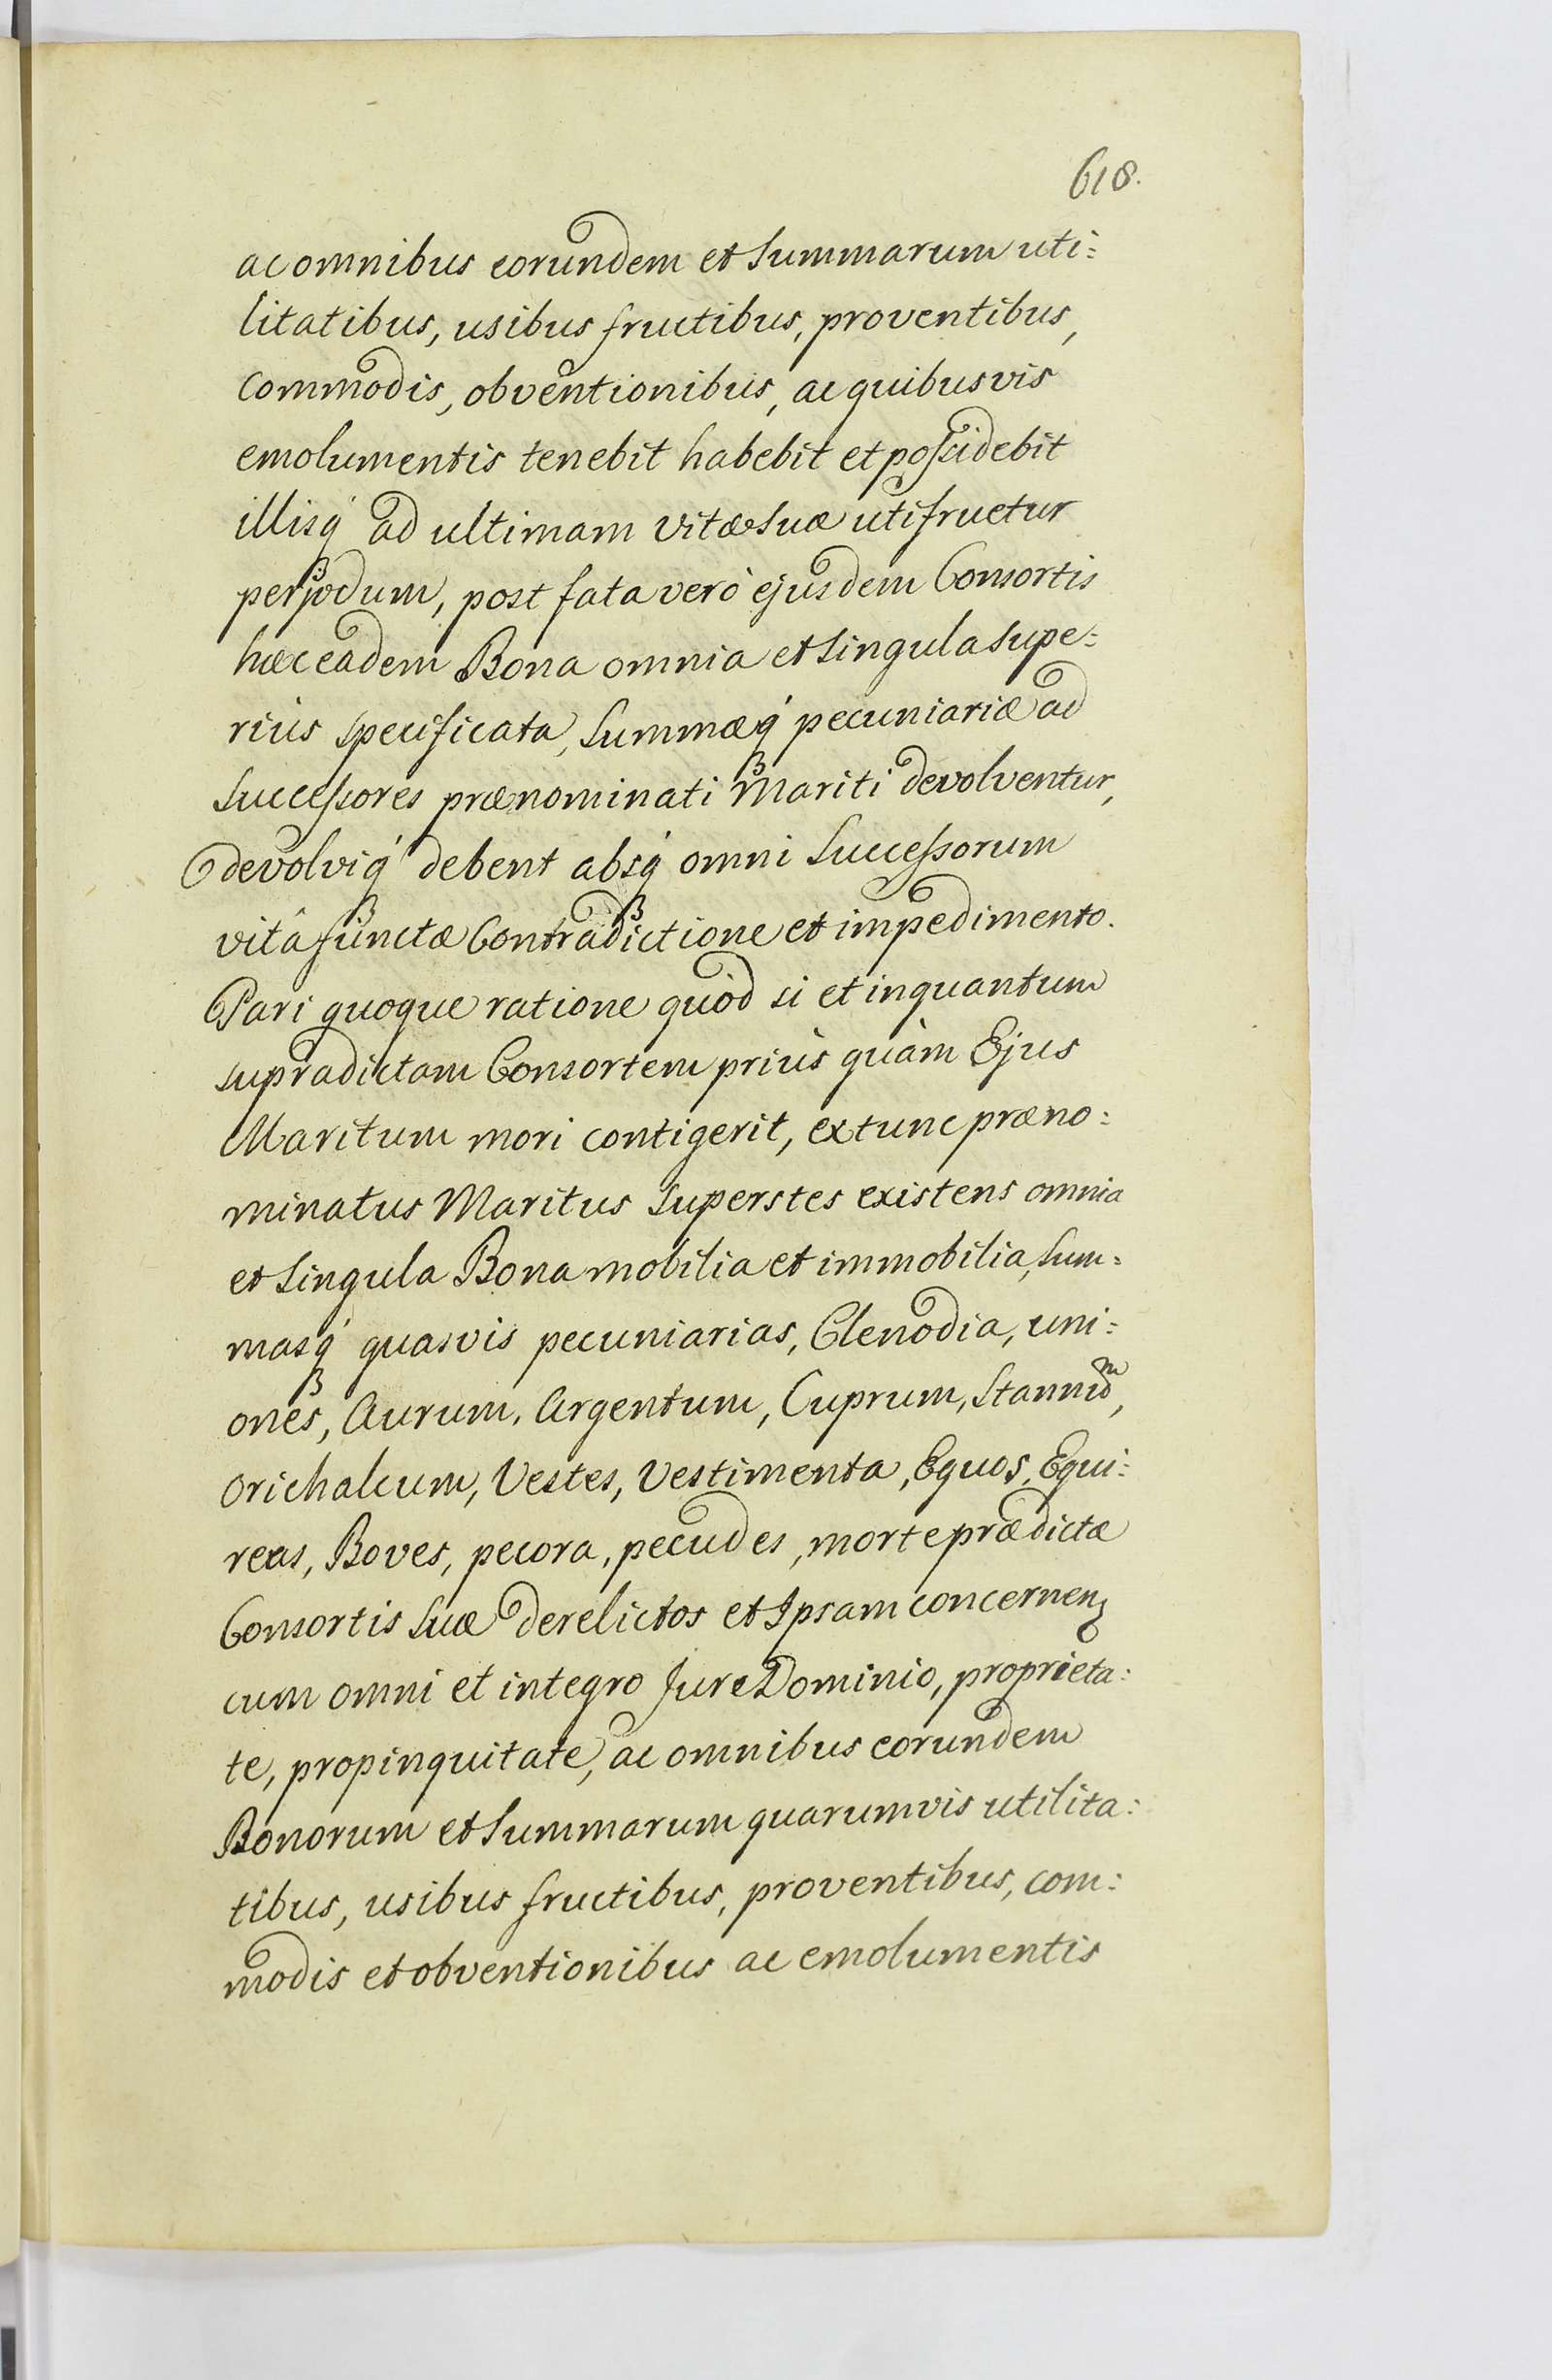 618.
ac omnibus eorundem et Summarum uti:
litatibus, usibus fructibus, proventibus,
commodis, obventionibus, ac quibusvis
emolumentis tenebit habebit et possidebit
illisq́ ad ultimam vitæ Suæ utifructur
perjodum, post fata verò ejusdem Consortis
hæc eadem Bona omnia et Singula Supe:
rius specificata, Summæq́ pecuniariæ ad
Successores prænominati Mariti devolventur,
devolviq́ debent absq́ omni Successorum
vitâ functæ Contradictione et impedimento.
Pari quoque ratione quòd si et inquantum
supradictam Consortem priùs quàm Ejus
Maritum mori contigerit, extunc præno:
minatus Maritus Superstes existens omnia
et Singula Bona mobilia et immobilia, Sum:
masq́ quasvis pecuniarias, Clenodia, uni:
ones, Aurum, Argentum, Cuprum, Stannum,
Orichalcum, Vestes, Vestimenta, Equos, Equi:
reas, Boves, pecora, pecudes, morte prædictæ
Consortis Suæ derelictos et Ipsam concernen
cum omni et integro Jure Dominio, proprieta:
te, propinquitate, ac omnibus eorundem
Bonorum et Summarum quarumvis utilita:
tibus, usibus fructibus, proventibus, com:
modis et obventionibus ac emolumentis